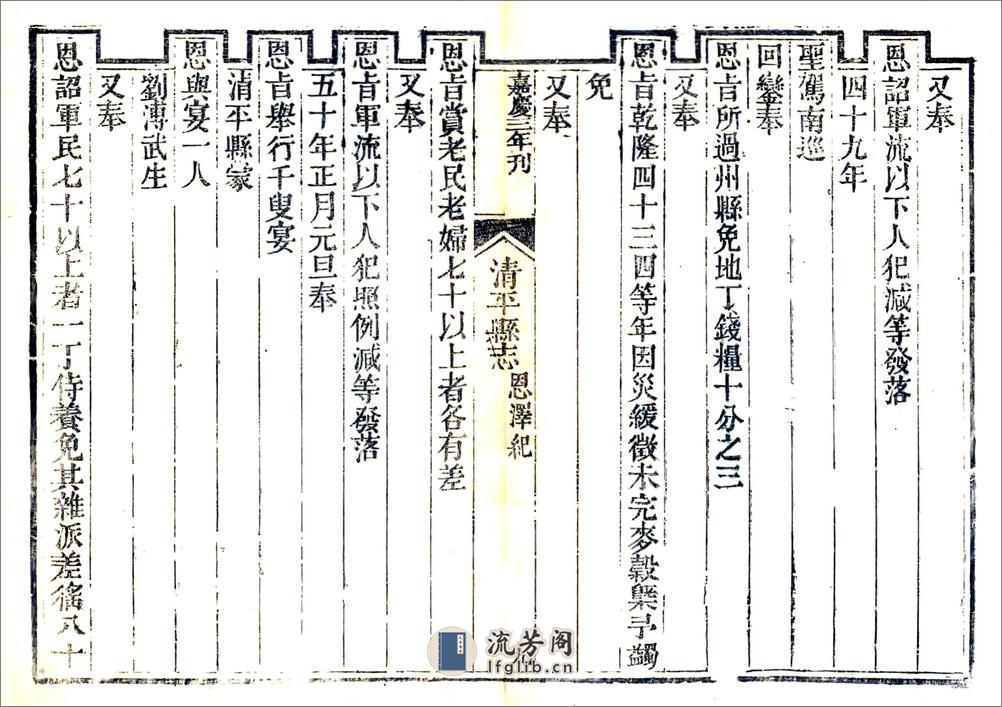 又奉
恩詔軍流以下人犯减等發落
四十九年
聖駕南巡
回鑾奉
恩旨所過州縣免地丁錢糧十分之三
又奉
恩旨乾隆四十三四等年因災緩徵未完麥穀槩予蠲
免
又奉
嘉慶三年刊
清平縣志
恩澤紀
恩旨賞老民老婦七十以上者各有差
又奉
恩旨軍流以下人犯照例减等發落
五十年正月元旦奉
恩旨舉行千叟宴
清平縣蒙
恩與宴一人
劉溥武生
又奉
恩詔軍民七十以上者一丁侍養免其雜派差徭八十
流芳阁
lfglib.cn